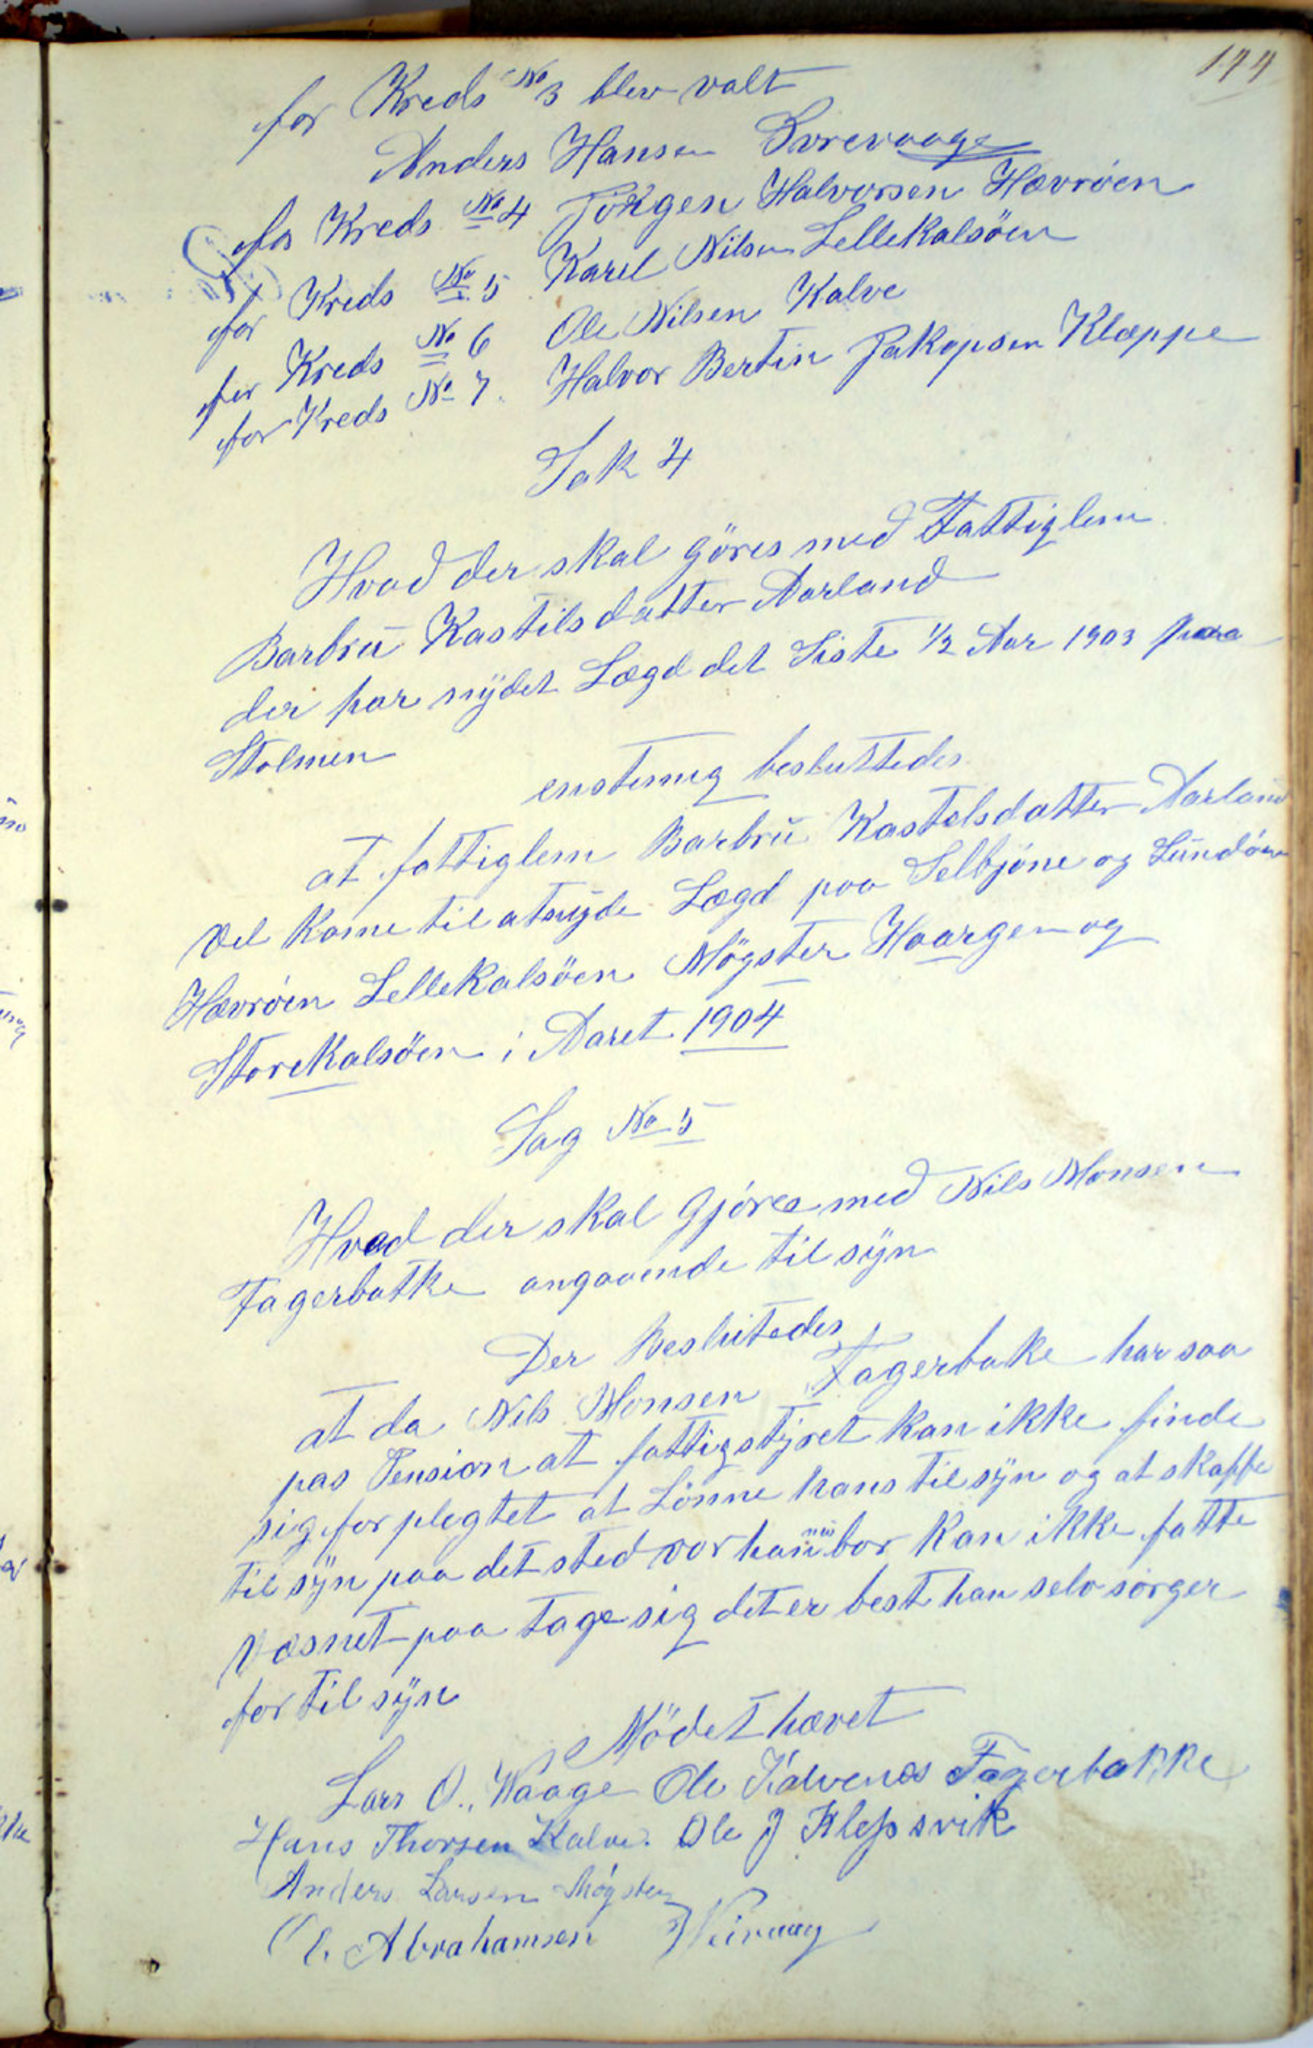 177
for Kreds No 3 blev valt
Anders Hansen Svrevaage
for Kreds No 4 Jörgen Halvorsen Hævröen
for Kreds No 5 Karel Nilsen Lellekalsöen
for Kreds No 6 Ole Nilsen Kalve
for Kreds No 7. Halvor Bertin Jakopsen Klæppe
Sak 4
Hvad der skal göres med Fattiglem
Barbru Kastilsdatter Aarland
der har nydet Lægd det Siste 1/2 Aar 1903 paa
Stolmen
enstemig besluttedes
at fattiglem Barbru Kastelsdatter Aarland
vel kome til at nyde Lægd paa Selbjöne og Lundöen
Hævröen Lellekalsöen Mögster Haargen og
Storekalsöen i Aaret 1904
Sag No 5
Hvad der skal Gjöres med Nils Monsen
Fagerbatke angaaende til syn
Der Beslutedes
at da Nils Monsen Fagerbake har saa
pas Pension at fattigstyret kan ikke finde
sig forplegtet at Lönne hans til syn og at skaffe
til syn paa det sted vor han bor kan ikke fatte
væsnet paa tage sig det er best han selv sörger
for til syn
Mödet hævet
Lars O. Waage Ole Fagerbakke
Hans Thorsen Kalve. Ole J Klepsvik
Anders Larsen Møgster
E. Abrahamsen